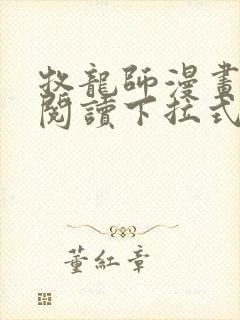 牧龍師漫畫
閱讀下拉式
董紅章